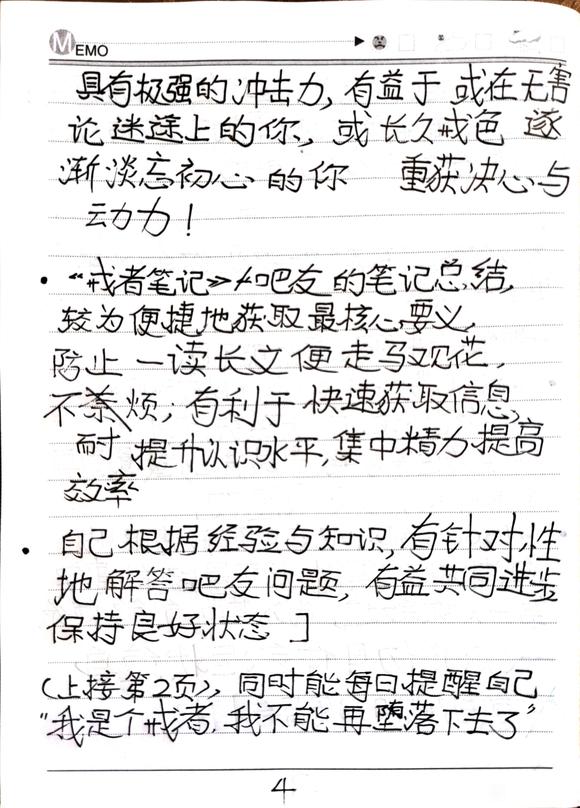 MEMO
具有极强的冲击力,有益于或在无害
论迷途上的你,或长久戒色 逐
渐淡忘初心的你 重获决心与
动力!
·“戒者笔记》/吧友的笔记总结,
较为便捷地获取最核心要义,
防止一读长文便走马观花,
不耐烦;有利于快速获取信息,
耐 提升认识水平,集中精力提高
效率
·自己根据经验与知识,有针对性
地解答吧友问题,有益共同进步
保持良好状态]
(上接第2页),同时能每日提醒自己
“我是个戒者,我不能再堕落下去了”
4